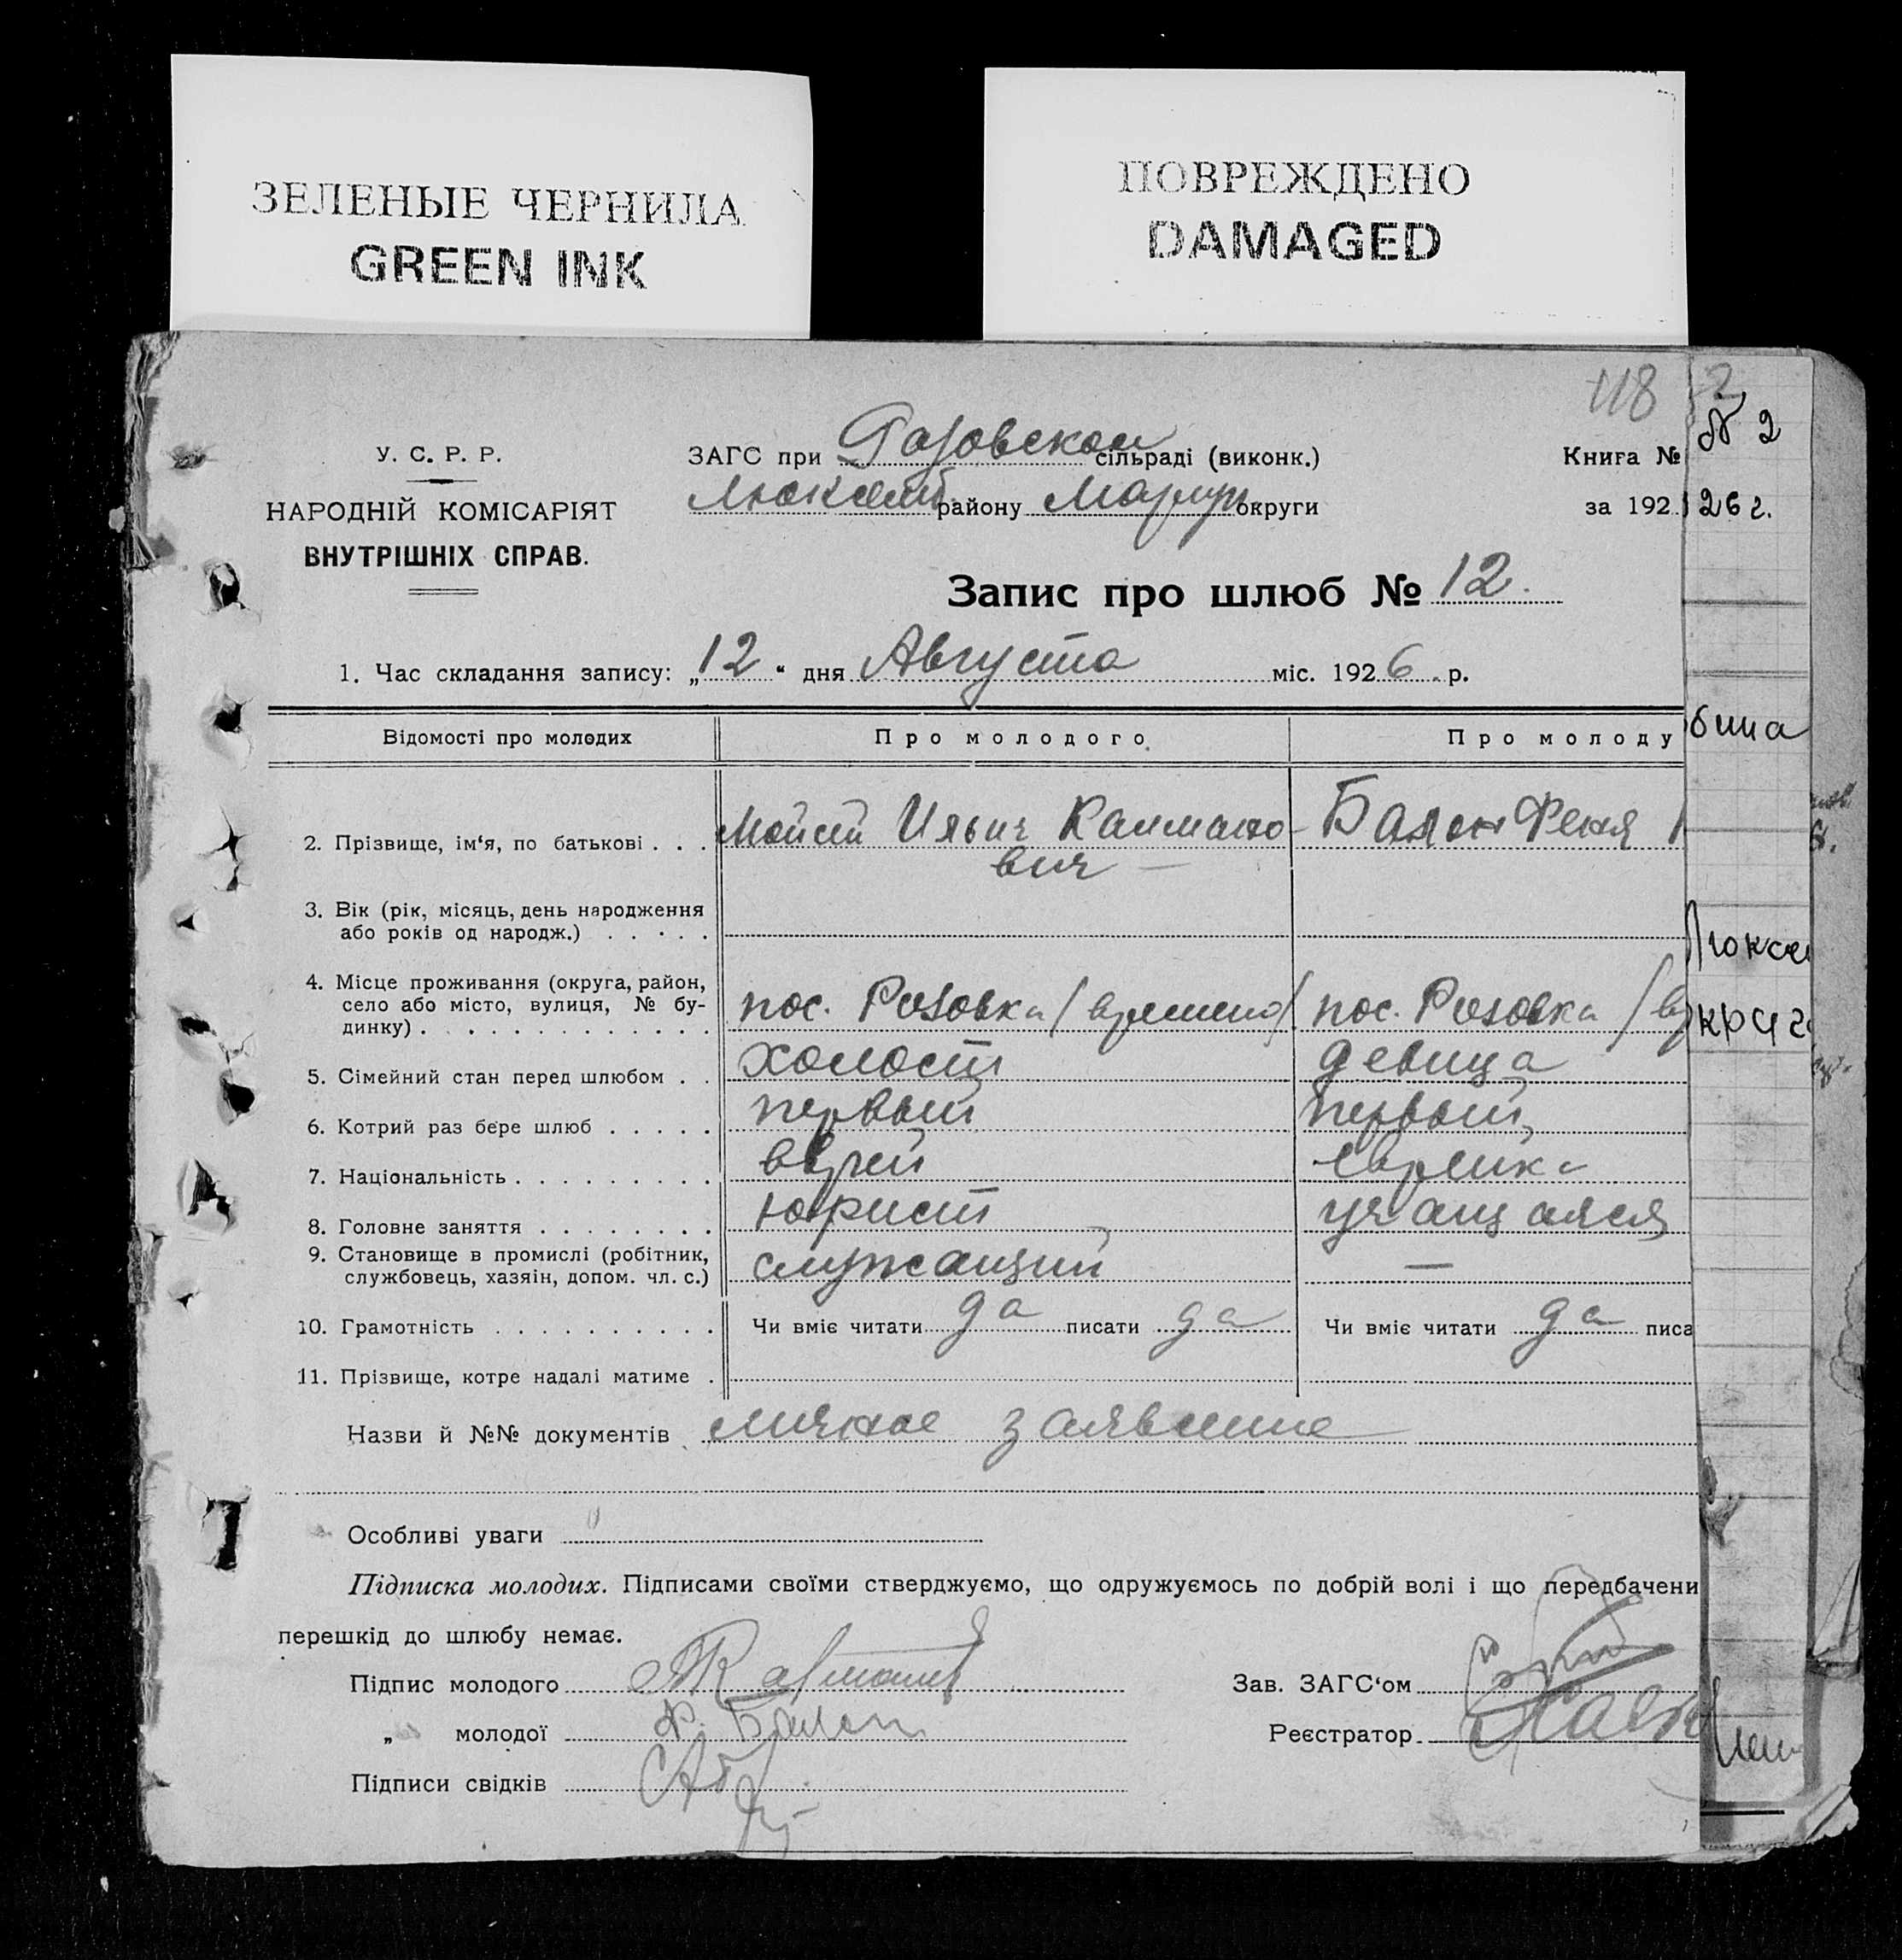 ЗЕЛЕНЫЕ ЧЕРНИЛА
GREEN INK
ПОВРЕЖДЕНО
DAMAGED
118 2
У. С. Р. Р.
НАРОДНІЙ КОМІСАРІЯТ
ВНУТРІШНІХ СПРАВ.
ЗАГС при Розовском сільраді (виконк.)
Люксемб. району Мариуп округи
Книга №
№ 2
за 192
26 г.
Запис про шлюб № 12.
1. Час складання запису: „12“ дня Августа міс. 1926. р.
Відомості про молодих Про молодого Про молоду
бина
2. Прізвище, ім‘я, по батькові . . . Мойсей Ильич Калмано- Бален Феня
вич —
3. Вік (рік, місяць, день народження
або років од народж.) . . . . .
Люксем
4. Місце проживання (округа, район,
село або місто, вулиця, № бу-
динку) . . . . . . . . . . . . . пос. Розовка /времено/ пос. Розовка /вр
округ
5. Сімейний стан перед шлюбом . . холост девица
6. Котрий раз бере шлюб . . . . . первый первый
7. Національність . . . . . . . . . еврей еврейка
8. Головне заняття . . . . . . . . юрист учащаяся
9. Становище в промислі (робітник,
службовець, хазяін, допом. чл. с.) служащий —
10. Грамотність . . . . . . . . . . Чи вміє читати да писати да Чи вміє читати да писа
11. Прізвище, котре надалі матиме .
Назви й №№ документів личное заявление
Особливі уваги
Підписка молодих. Підписами своїми стверджуємо, що одружуємось по добрій волі і що передбачени
перешкід до шлюбу немає.
Підпис молодого Зав. ЗАГС‘ом
„ молодої Ф. Бален Реєстратор
Підписи свідків